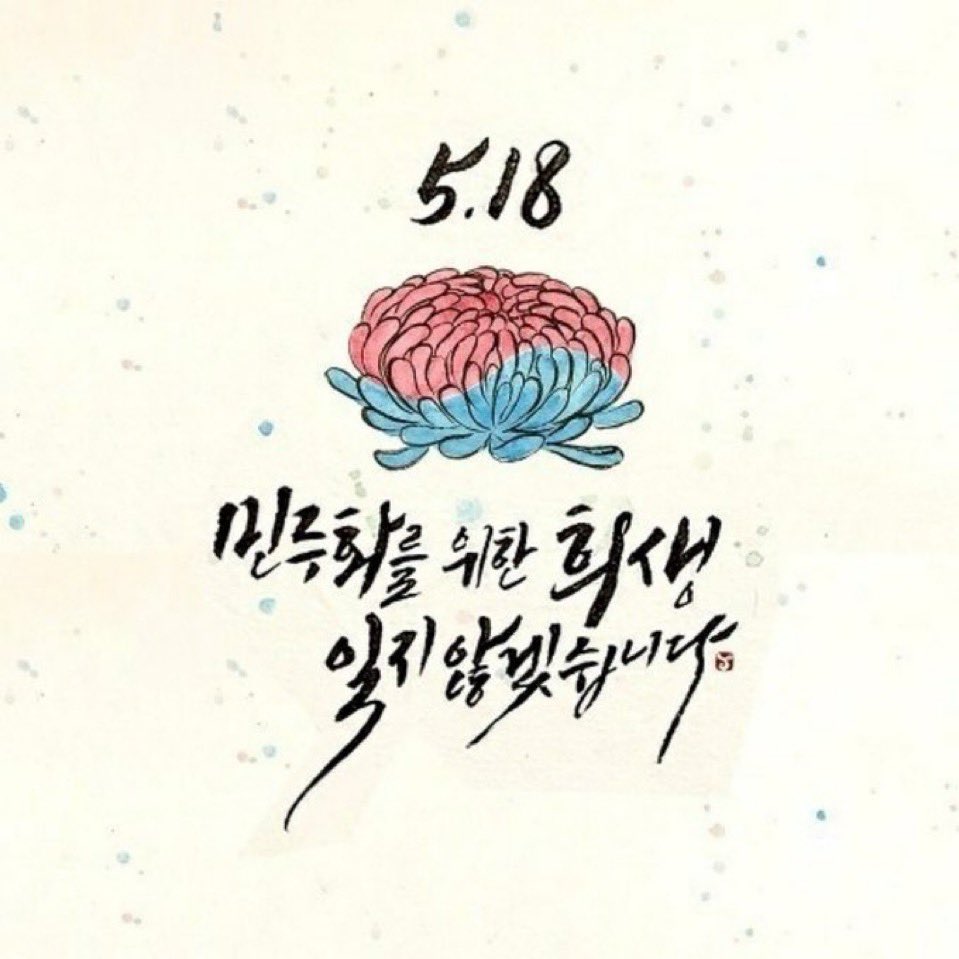 5.18
민주화를 위한 희생
잊지 않겠습니다